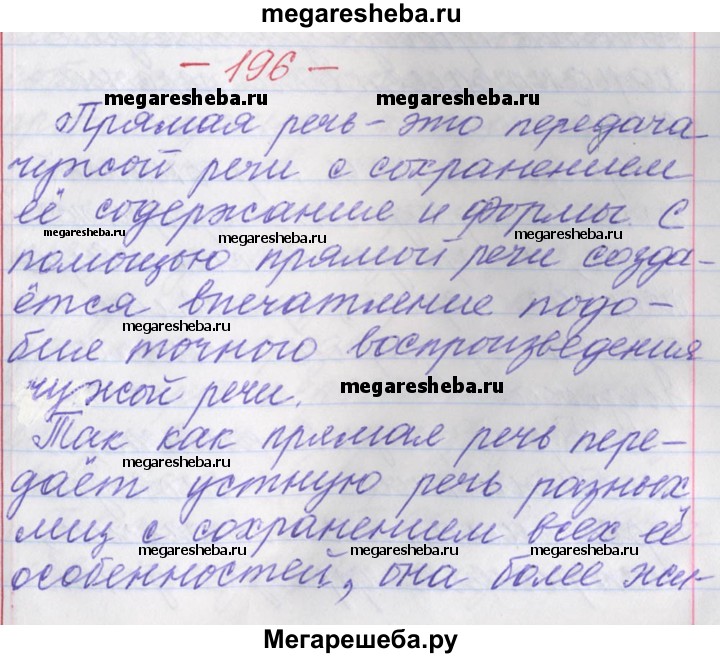 megaresheba.ru
- 196 -
megaresheba.ru megaresheba.ru
Прямая речь - это передача
чужой речи с сохранением
megaresheba.ru
её содержание и формы. С
megaresheba.ru megaresheba.ru
помощью прямой речи созда-
ётся впечатление подо-
megaresheba.ru
бие точного воспроизведения
megaresheba.ru
чужой речи.
Так как прямая речь пере-
megaresheba.ru megaresheba.ru
даёт устную речь разных
лиц с сохранением всех её
megaresheba.ru megaresheba.ru megaresheba.ru
особенностей, она более
Мегарешеба.ру